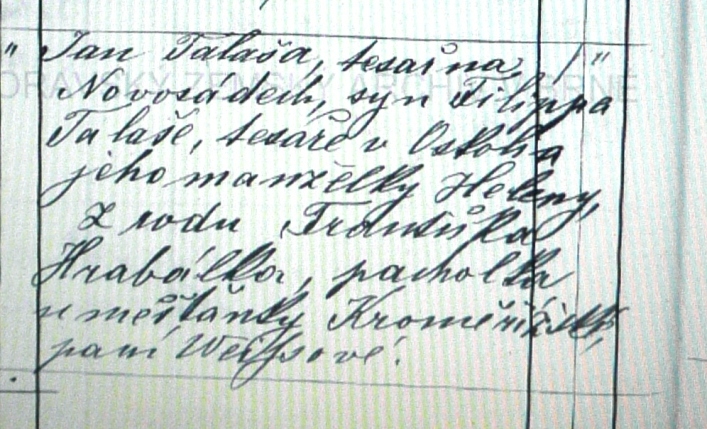 " Jan Talaša, tesař na "
Novosádech, syn Filippa
Talaše, tesaře v Oskol a
jeho manželky Heleny,
z rodu Františka
Hrabálka, pacholka
u mešťánky Kroměřížské,
paní Weissové.
MORAVSKÝ ZEMSKÝ ARCHIV V BRNĚ